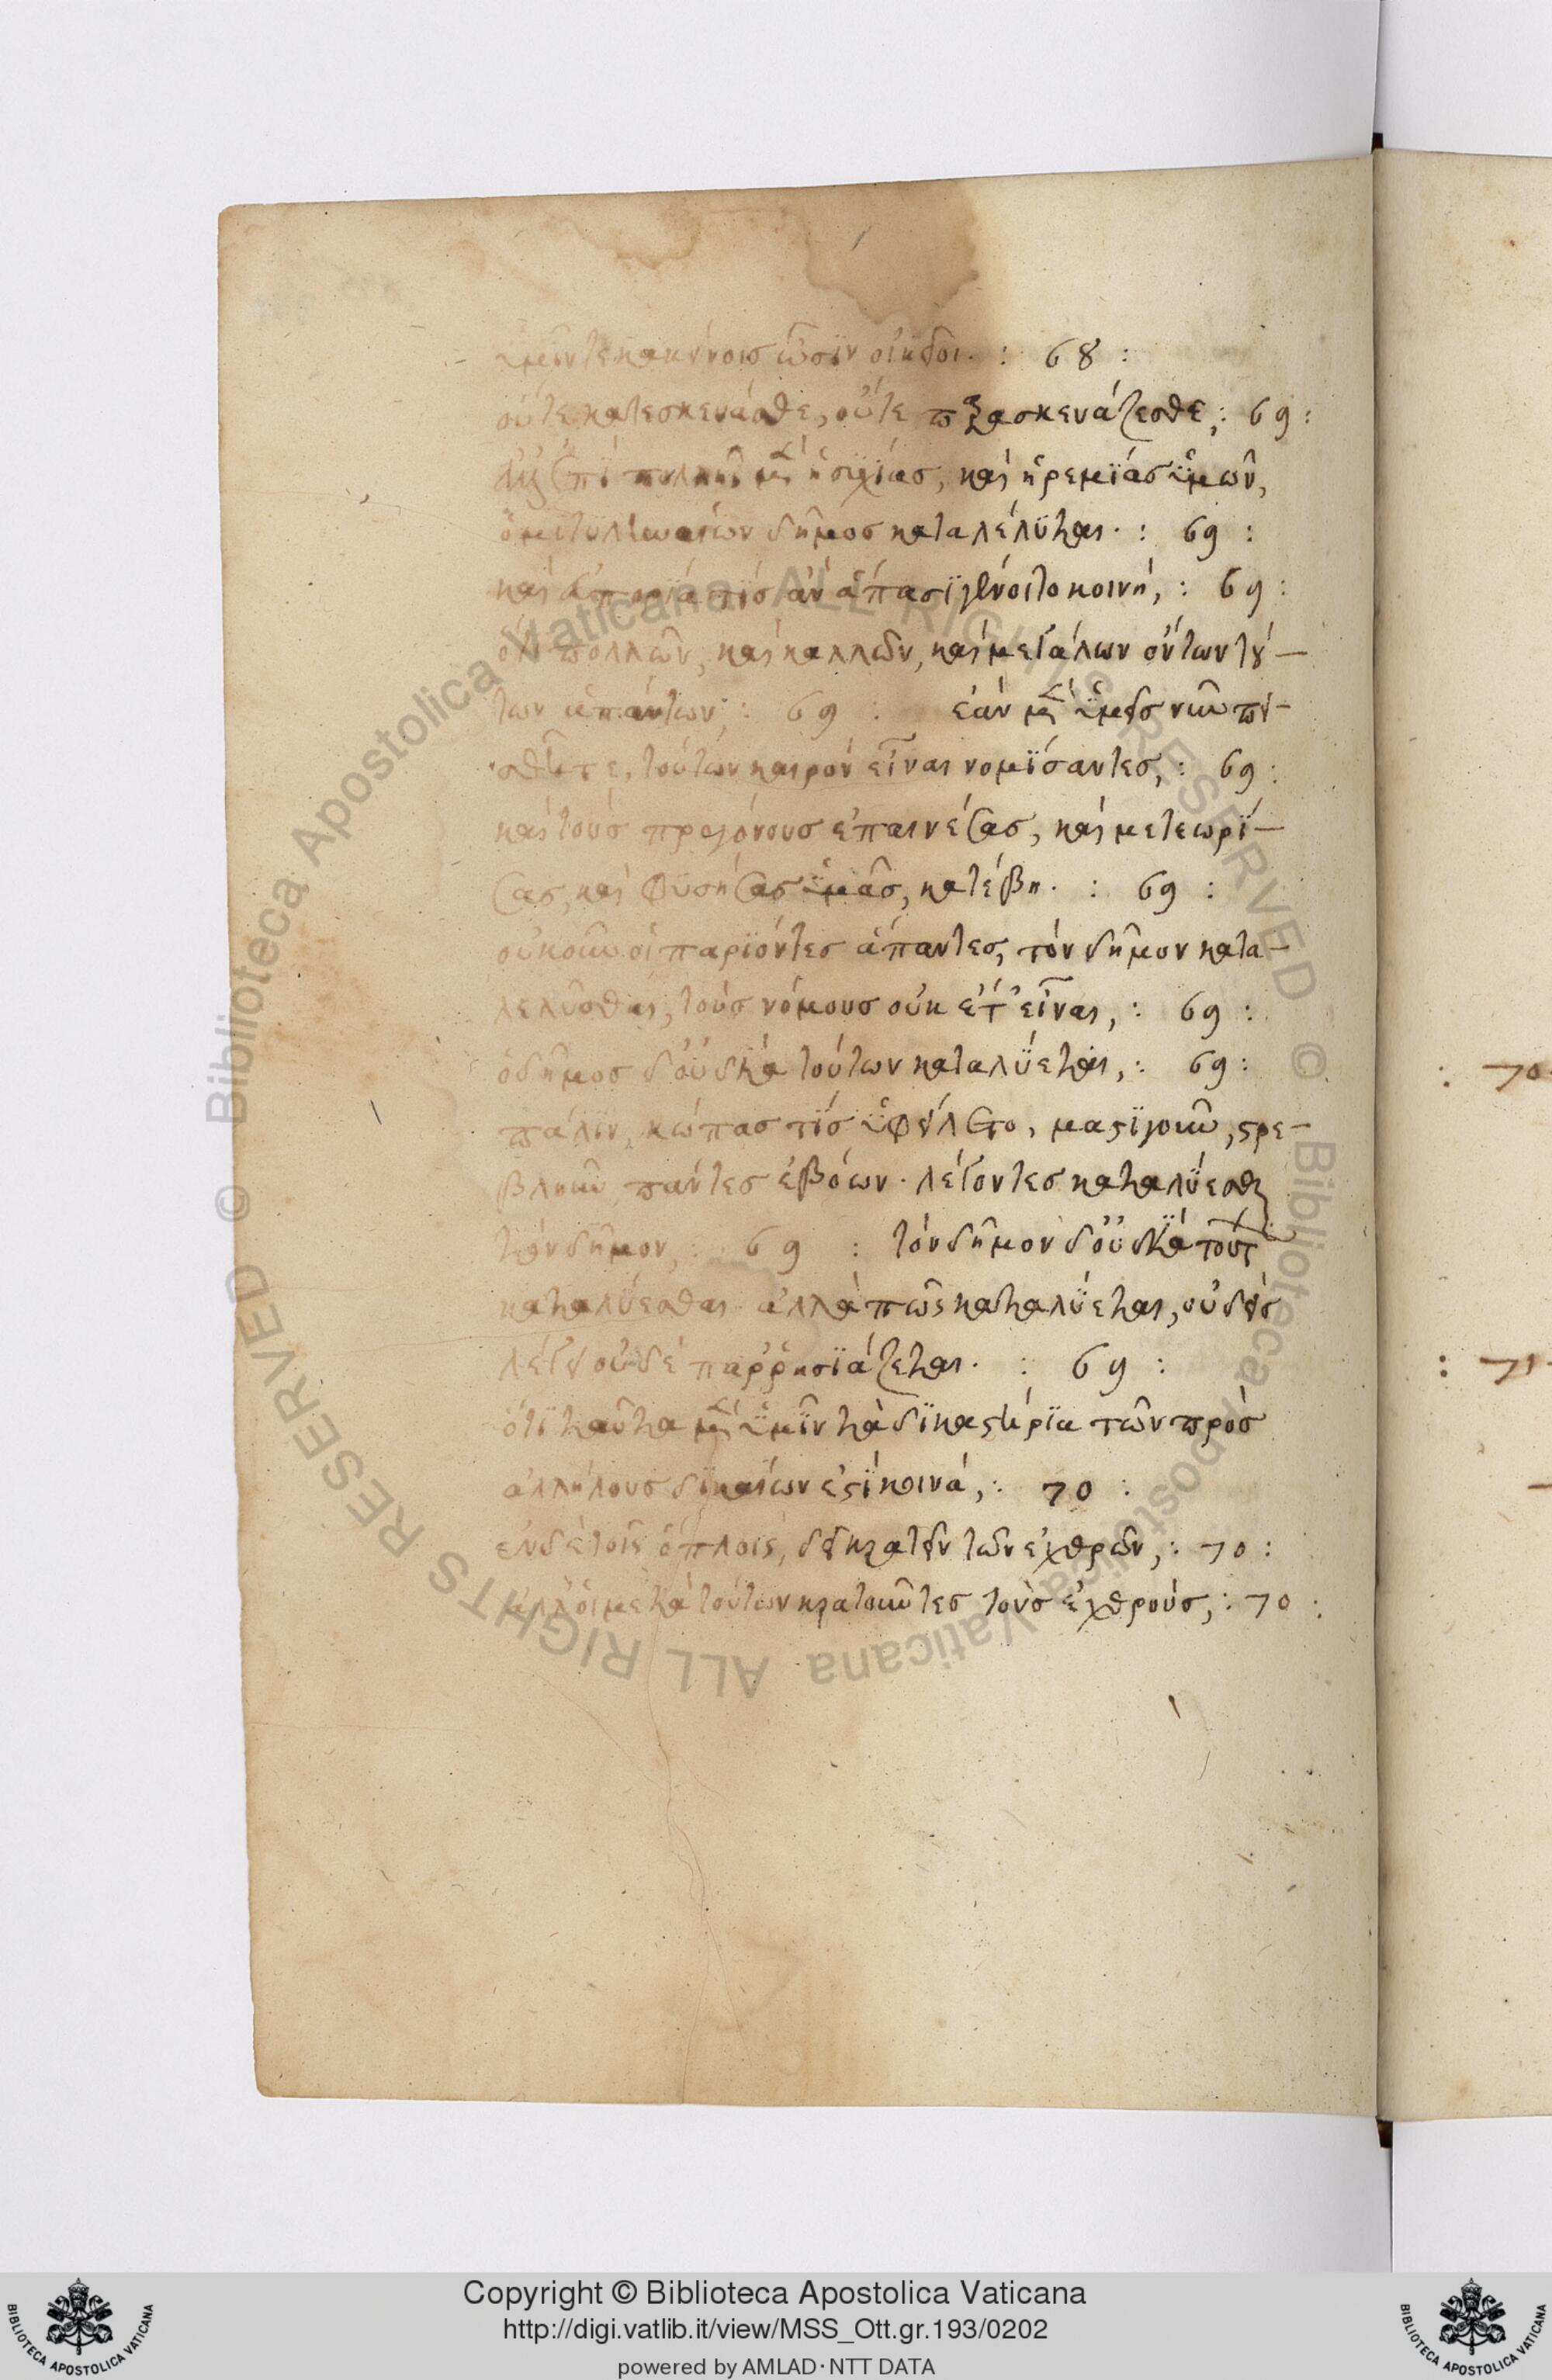 ὑμῖν τε κακείνοις ὦσιν οἰκεῖοι· : 68 :
οὔτε κατεσκεύασθε, οὔτε παρασκευάζεσθε, : 69 :
ἐπὶ πολλῆς μὲν ἡσυχίας, καὶ ἠρεμίας ὑμῶν,
ὁ μιτυληναίων δῆμος καταλέλυται· : 69 :
καὶ ἀπορία τίς ἂν ἅπασι γένοιτο κοινή, : 69 :
ὅτι πολλῶν, καὶ καλλῶν, καὶ μεγάλων ὄντων τού-
των ἁπάντων, : 69 : ἐὰν μὲν ὑμεῖς νῦν πει-
σθῆτε, τούτων καιρὸν εἶναι νομίσαντες, : 69 :
καὶ τοὺς προγόνους ἐπαινέσας, καὶ μετεωρί-
σας, καὶ φυσήσας ὑμᾶς, κατέβη· : 69 :
οὐκοῦν οἱ παριόντες ἅπαντες, τὸν δῆμον κατα-
λελύσθαι, τοὺς νόμους οὐκ ἔτ' εἶναι, : 69 :
ὁ δῆμος δ' οὐ διὰ τούτων καταλύεται, : 69 :
πάλιν, κώπας τίς ὑφείλετο, μαστιγοῦν, στρε-
βλοῦν πάντες ἐβόων· λέγοντες καταλύεσθαι
τὸν δῆμον, : 69 : τὸν δῆμον δ' οὐ διὰ τοῦτ
καταλύεσθαι ἀλλὰ πῶς καταλύεται, οὐδεὶς
λέγει οὐδὲ παῤῥησιάζεται· : 69 :
ὅτι ταῦτα μὲν ὑμῖν τὰ δικαστήρια τῶν πρὸς
ἀλλήλους δικαίων ἐστὶ κοινά, : 70 :
ἐν δὲ τοῖς ὅπλοις, δεῖ κρατεῖν τῶν ἐχθρῶν, : 70 :
ἀλλ' οἱ μετὰ τούτων κρατοῦντες τοὺς ἐχθρούς, : 70 :
: 70
: 71
Copyright © Biblioteca Apostolica Vaticana
http://digi.vatlib.it/view/MSS_Ott.gr.193/0202
powered by AMLAD·NTT DATA
BIBLIOTECA APOSTOLICA VATICANA
BIBLIOTECA APOSTOLICA VATICANA
© Biblioteca Apostolica Vaticana ALL RIGHTS RESERVED © Biblioteca Apostolica Vaticana ALL RIGHTS RESERVED